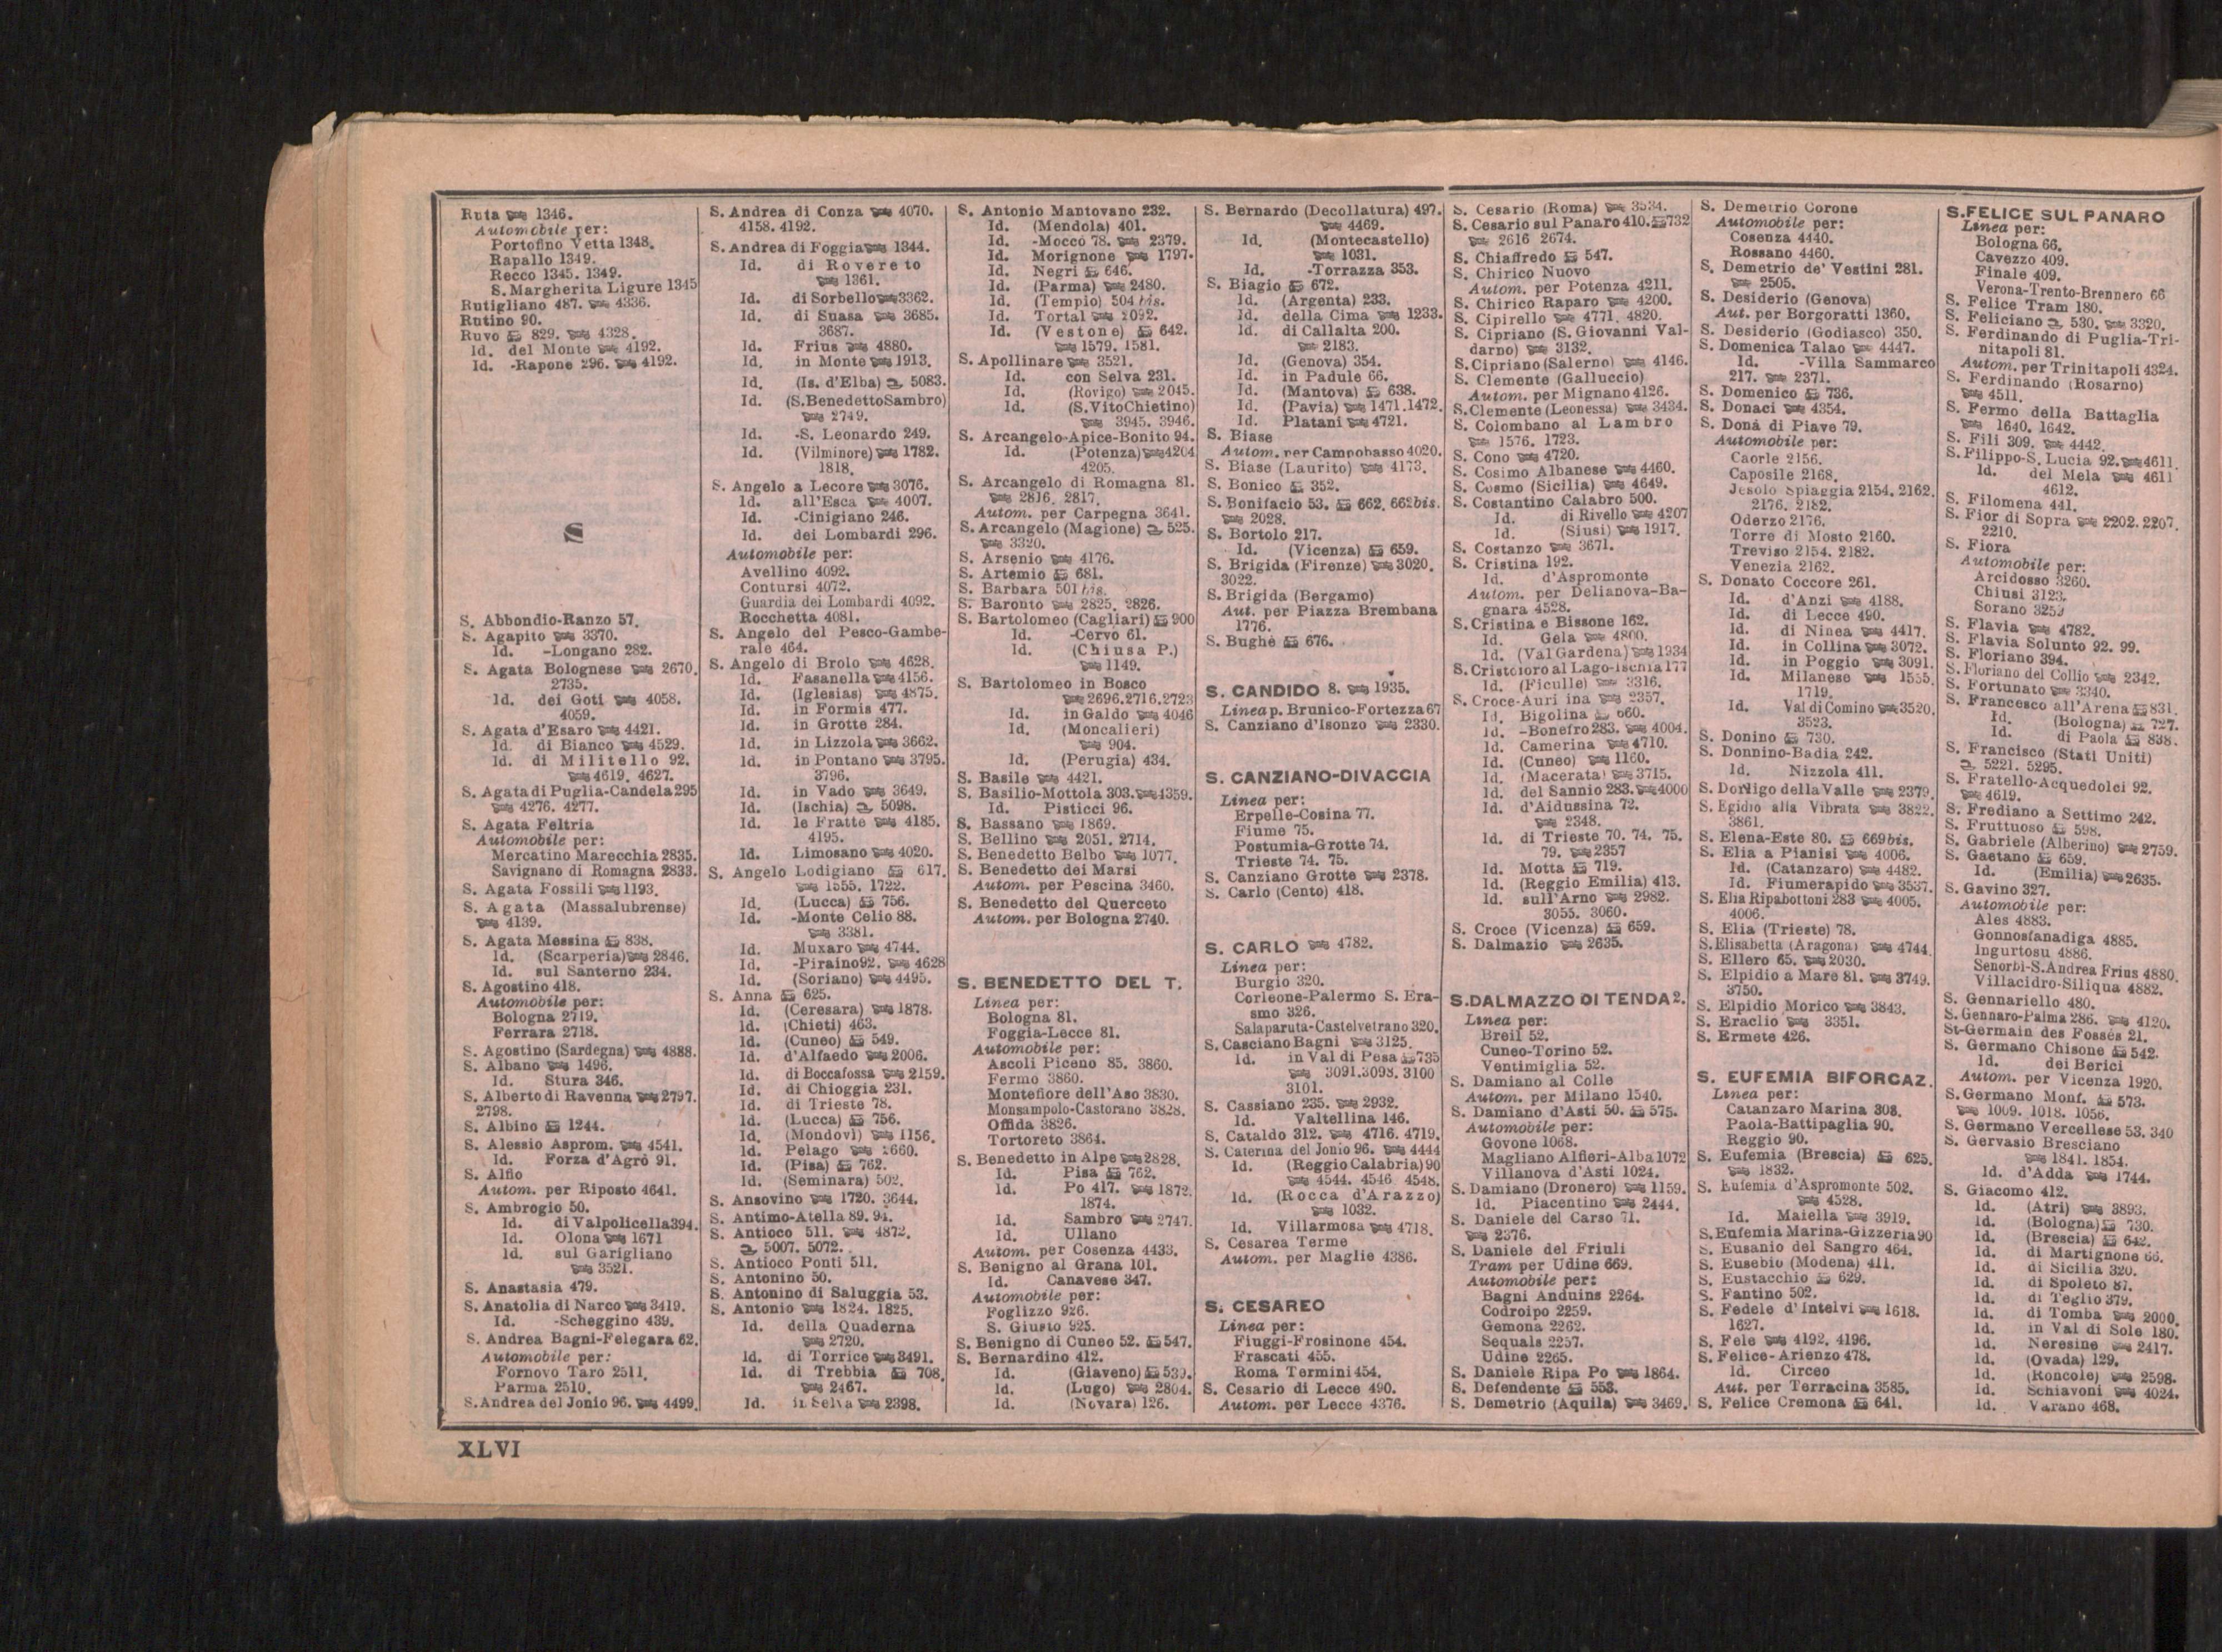 Ruta 1346.
Automobile per:
Portofino Vetta 1348.
Rapallo 1349.
Recco 1345. 1349.
S. Margherita Ligure 1345
Rutigliano 487. 4336.
Rutino 90.
Ruvo 829. 4328.
Id. del Monte 4192.
Id. -Rapone 296. 4192.
S
S. Abbondio-Ranzo 57.
S. Agapito 3370.
Id. -Longano 282.
S. Agata Bolognese 2670.
2735.
Id. dei Goti 4058.
4059.
S. Agata d'Esaro 4421.
Id. di Bianco 4529.
Id. di Militello 92.
4619. 4627.
S. Agata di Puglia-Candela 295
4276. 4277.
S. Agata Feltria
Automobile per:
Mercatino Marecchia 2835.
Savignano di Romagna 2833.
S. Agata Fossili 1193.
S. Agata (Massalubrense)
4139.
S. Agata Messina 838.
Id. (Scarperia) 2846.
Id. sul Santerno 234.
S. Agostino 418.
Automobile per:
Bologna 2719.
Ferrara 2718.
S. Agostino (Sardegna) 4888.
S. Albano 1496.
Id. Stura 346.
S. Alberto di Ravenna 2797.
2798.
S. Albino 1244.
S. Alessio Asprom. 4541.
Id. Forza d'Agrò 91.
S. Alfio
Autom. per Riposto 4641.
S. Ambrogio 50.
Id. di Valpolicella 394.
Id. Olona 1671
Id. sul Garigliano
3521.
S. Anastasia 479.
S. Anatolia di Narco 3419.
Id. -Scheggino 439.
S. Andrea Bagni-Felegara 62.
Automobile per:
Fornovo Taro 2511.
Parma 2510.
S. Andrea del Jonio 96. 4499.
S. Andrea di Conza 4070.
4158. 4192.
S. Andrea di Foggia 1344.
Id. di Rovereto
1361.
Id. di Sorbello 3362.
Id. di Suasa 3685.
3687.
Id. Frius 4880.
Id. in Monte 1913.
Id. (Is. d'Elba) 5083.
Id. (S. Benedetto Sambro)
2749.
Id. -S. Leonardo 249.
Id. (Vilminore) 1782.
1818.
S. Angelo a Lecore 3076.
Id. all'Esca 4007.
Id. -Cinigiano 246.
Id. dei Lombardi 296.
Automobile per:
Avellino 4092.
Contursi 4072.
Guardia dei Lombardi 4092.
Rocchetta 4081.
S. Angelo del Pesco-Gambe-
rale 464.
S. Angelo di Brolo 4628.
Id. Fasanella 4156.
Id. (Iglesias) 4875.
Id. in Formis 477.
Id. in Grotte 284.
Id. in Lizzola 3662.
Id. in Pontano 3795.
3796.
Id. in Vado 3649.
Id. (Ischia) 5098.
Id. le Fratte 4185.
4195.
Id. Limosano 4020.
S. Angelo Lodigiano 617.
1555. 1722.
Id. (Lucca) 756.
Id. -Monte Celio 88.
3381.
Id. Muxaro 4744.
Id. -Piraino 92. 4628
Id. (Soriano) 4495.
S. Anna 625.
Id. (Ceresara) 1878.
Id. (Chieti) 463.
Id. (Cuneo) 549.
Id. d'Alfaedo 2006.
Id. di Boccafossa 2159.
Id. di Chioggia 231.
Id. di Trieste 78.
Id. (Lucca) 756.
Id. (Mondovì) 1156.
Id. Pelago 2660.
Id. (Pisa) 762.
Id. (Seminara) 502.
S. Ansovino 1720. 3644.
S. Antimo-Atella 89. 94.
S. Antioco 511. 4872.
5007. 5072.
S. Antioco Ponti 511.
S. Antonino 50.
S. Antonino di Saluggia 53.
S. Antonio 1824. 1825.
Id. della Quaderna
2720.
Id. di Torrice 3491.
Id. di Trebbia 708.
2467.
Id. in Selva 2398.
S. Antonio Mantovano 232.
Id. (Mendola) 401.
Id. -Moccó 78. 2379.
Id. Morignone 1797.
Id. Negri 646.
Id. (Parma) 2480.
Id. (Tempio) 504 bis.
Id. Tortal 2092.
Id. (Vestone) 642.
1579. 1581.
S. Apollinare 3521.
Id. con Selva 231.
Id. (Rovigo) 2045.
Id. (S. Vito Chietino)
3945. 3946.
S. Arcangelo-Apice-Bonito 94.
Id. (Potenza) 4204
4205.
S. Arcangelo di Romagna 81.
2816. 2817.
Autom. per Carpegna 3641.
S. Arcangelo (Magione) 525.
3320.
S. Arsenio 4176.
S. Artemio 681.
S. Barbara 501 bis.
S. Baronto 2825. 2826.
S. Bartolomeo (Cagliari) 900
Id. -Cervo 61.
Id. (Chiusa P.)
1149.
S. Bartolomeo in Bosco
2696. 2716. 2723
Id. in Galdo 4046
Id. (Moncalieri)
904.
Id. (Perugia) 434.
S. Basile 4421.
S. Basilio-Mottola 303. 4359.
Id. Pisticci 96.
S. Bassano 1869.
S. Bellino 2051. 2714.
S. Benedetto Belbo 1077.
S. Benedetto dei Marsi
Autom. per Pescina 3460.
S. Benedetto del Querceto
Autom. per Bologna 2740.
S. BENEDETTO DEL T.
Linea per:
Bologna 81.
Foggia-Lecce 81.
Automobile per:
Ascoli Piceno 85. 3860.
Fermo 3860.
Montefiore dell'Aso 3830.
Monsampolo-Castorano 3828.
Offida 3826.
Tortoreto 3864.
S. Benedetto in Alpe 2828.
Id. Pisa 762.
Id. Po 417. 1872.
1874.
Id. Sambro 2747.
Id. Ullano
Autom. per Cosenza 4433.
S. Benigno al Grana 101.
Id. Canavese 347.
Automobile per:
Foglizzo 926.
S. Giusto 925.
S. Benigno di Cuneo 52. 547.
S. Bernardino 412.
Id. (Giaveno) 539.
Id. (Lugo) 2804.
Id. (Novara) 126.
S. Bernardo (Decollatura) 497.
4469.
Id. (Montecastello)
1031.
Id. -Torrazza 353.
S. Biagio 672.
Id. (Argenta) 233.
Id. della Cima 1233.
Id. di Callalta 200.
2183.
Id. (Genova) 354.
Id. in Padule 66.
Id. (Mantova) 638.
Id. (Pavia) 1471. 1472.
Id. Platani 4721.
S. Biase
Autom. per Campobasso 4020.
S. Biase (Laurito) 4173.
S. Bonico 352.
S. Bonifacio 53. 662. 662 bis.
2028.
S. Bortolo 217.
Id. (Vicenza) 659.
S. Brigida (Firenze) 3020.
3022.
S. Brigida (Bergamo)
Aut. per Piazza Brembana
1776.
S. Bughè 676.
S. CANDIDO 8. 1935.
Linea p. Brunico-Fortezza 67
S. Canziano d'Isonzo 2330.
S. CANZIANO-DIVACCIA
Linea per:
Erpelle-Cosina 77.
Fiume 75.
Postumia-Grotte 74.
Trieste 74. 75.
S. Canziano Grotte 2378.
S. Carlo (Cento) 418.
S. CARLO 4782.
Linea per:
Burgio 320.
Corleone-Palermo S. Era-
smo 326.
Salaparuta-Castelvetrano 320.
S. Casciano Bagni 3125.
Id. in Val di Pesa 735
3091. 3098. 3100
3101.
S. Cassiano 235. 2932.
Id. Valtellina 146.
S. Cataldo 312. 4716. 4719.
S. Caterina del Jonio 96. 4444
Id. (Reggio Calabria) 90
4544. 4546 4548.
Id. (Rocca d'Arazzo)
1032.
Id. Villarmosa 4718.
S. Cesarea Terme
Autom. per Maglie 4386.
S. CESAREO
Linea per:
Fiuggi-Frosinone 454.
Frascati 455.
Roma Termini 454.
S. Cesario di Lecce 490.
Autom. per Lecce 4376.
S. Cesario (Roma) 3534.
S. Cesario sul Panaro 410. 732
2616 2674.
S. Chiaffredo 547.
S. Chirico Nuovo
Autom. per Potenza 4211.
S. Chirico Raparo 4200.
S. Cipirello 4771. 4820.
S. Cipriano (S. Giovanni Val-
darno) 3132.
S. Cipriano (Salerno) 4146.
S. Clemente (Galluccio)
Autom. per Mignano 4126.
S. Clemente (Leonessa) 3434.
S. Colombano al Lambro
1576. 1723.
S. Cono 4720.
S. Cosimo Albanese 4460.
S. Cosmo (Sicilia) 4649.
S. Costantino Calabro 500.
Id. di Rivello 4207
Id. (Siusi) 1917.
S. Costanzo 3671.
S. Cristina 192.
Id. d'Aspromonte
Autom. per Delianova-Ba-
gnara 4528.
S. Cristina e Bissone 162.
Id. Gela 4800.
Id. (Val Gardena) 1934
S. Cristoforo al Lago-Ischia 177
Id. (Ficulle) 3316.
S. Croce-Aurisina 2357.
Id. Bigolina 660.
Id. -Bonefro 283. 4004.
Id. Camerina 4710.
Id. (Cuneo) 1160.
Id. (Macerata) 3715.
Id. del Sannio 283. 4000
Id. d'Aidussina 72.
2348.
Id. di Trieste 70. 74. 75.
79. 2357
Id. Motta 719.
Id. (Reggio Emilia) 413.
Id. sull'Arno 2982.
3055. 3060.
S. Croce (Vicenza) 659.
S. Dalmazio 2635.
S. DALMAZZO DI TENDA 2.
Linea per:
Breil 52.
Cuneo-Torino 52.
Ventimiglia 52.
S. Damiano al Colle
Autom. per Milano 1540.
S. Damiano d'Asti 50. 575.
Automobile per:
Govone 1068.
Magliano Alfieri-Alba 1072
Villanova d'Asti 1024.
S. Damiano (Dronero) 1159.
Id. Piacentino 2444.
S. Daniele del Carso 71.
2376.
S. Daniele del Friuli
Tram per Udine 669.
Automobile per:
Bagni Anduins 2264.
Codroipo 2259.
Gemona 2262.
Sequals 2257.
Udine 2265.
S. Daniele Ripa Po 1864.
S. Defendente 553.
S. Demetrio (Aquila) 3469.
S. Demetrio Corone
Automobile per:
Cosenza 4440.
Rossano 4460.
S. Demetrio de' Vestini 281.
2505.
S. Desiderio (Genova)
Aut. per Borgoratti 1360.
S. Desiderio (Godiasco) 350.
S. Domenica Talao 4447.
Id. -Villa Sammarco
217. 2371.
S. Domenico 736.
S. Donaci 4354.
S. Doná di Piave 79.
Automobile per:
Caorle 2156.
Caposile 2168.
Jesolo Spiaggia 2154. 2162.
2176. 2182.
Oderzo 2176.
Torre di Mosto 2160.
Treviso 2154. 2182.
Venezia 2162.
S. Donato Coccore 261.
Id. d'Anzi 4188.
Id. di Lecce 490.
Id. di Ninea 4417.
Id. in Collina 3072.
Id. in Poggio 3091.
Id. Milanese 1555.
1719.
Id. Val di Comino 3520.
3523.
S. Donino 730.
S. Donnino-Badia 242.
Id. Nizzola 411.
S. Dorligo della Valle 2379.
S. Egidio alla Vibrata 3822.
3861.
S. Elena-Este 80. 669 bis.
S. Elia a Pianisi 4006.
Id. (Catanzaro) 4482.
Id. Fiumerapido 3537.
S. Elia Ripabottoni 283 4005.
4006.
S. Elia (Trieste) 78.
S. Elisabetta (Aragona) 4744.
S. Ellero 65. 2030.
S. Elpidio a Mare 81. 3749.
3750.
S. Elpidio Morico 3843.
S. Eraclio 3351.
S. Ermete 426.
S. EUFEMIA BIFORCAZ.
Linea per:
Catanzaro Marina 308.
Paola-Battipaglia 90.
Reggio 90.
S. Eufemia (Brescia) 625.
1832.
S. Eufemia d'Aspromonte 502.
4528.
Id. Maiella 3919.
S. Eufemia Marina-Gizzeria 90
S. Eusanio del Sangro 464.
S. Eusebio (Modena) 411.
S. Eustacchio 629.
S. Fantino 502.
S. Fedele d'Intelvi 1618.
1627.
S. Fele 4192. 4196.
S. Felice-Arienzo 478.
Id. Circeo
Aut. per Terracina 3585.
S. Felice Cremona 641.
S. FELICE SUL PANARO
Linea per:
Bologna 66.
Cavezzo 409.
Finale 409.
Verona-Trento-Brennero 66
S. Felice Tram 180.
S. Feliciano 530. 3320.
S. Ferdinando di Puglia-Tri-
nitapoli 81.
Autom. per Trinitapoli 4324.
S. Ferdinando (Rosarno)
4511.
S. Fermo della Battaglia
1640. 1642.
S. Fili 309. 4442.
S. Filippo-S. Lucia 92. 4611.
Id. del Mela 4611
4612.
S. Filomena 441.
S. Fior di Sopra 2202. 2207.
2210.
S. Fiora
Automobile per:
Arcidosso 3260.
Chiusi 3123.
Sorano 3259
S. Flavia 4782.
S. Flavia Solunto 92. 99.
S. Floriano 394.
S. Floriano del Collio 2342.
S. Fortunato 3340.
S. Francesco all'Arena 831.
Id. (Bologna) 727.
Id. di Paola 838.
S. Francisco (Stati Uniti)
5221. 5295.
S. Fratello-Acquedolci 92.
4619.
S. Frediano a Settimo 242.
S. Fruttuoso 598.
S. Gabriele (Alberino) 2759.
S. Gaetano 659.
Id. (Emilia) 2635.
S. Gavino 327.
Automobile per:
Ales 4883.
Gonnosfanadiga 4885.
Ingurtosu 4886.
Senorbì-S. Andrea Frius 4880.
Villacidro-Siliqua 4882.
S. Gennariello 480.
S. Gennaro-Palma 286. 4120.
St-Germain des Fossés 21.
S. Germano Chisone 542.
Id. dei Berici
Autom. per Vicenza 1920.
S. Germano Monf. 573.
1009. 1018. 1056.
S. Germano Vercellese 53. 340
S. Gervasio Bresciano
1841. 1854.
Id. d'Adda 1744.
S. Giacomo 412.
Id. (Atri) 3893.
Id. (Bologna) 730.
Id. (Brescia) 642.
Id. di Martignone 66.
Id. di Sicilia 320.
Id. di Spoleto 87.
Id. di Teglio 379.
Id. di Tomba 2000.
Id. in Val di Sole 180.
Id. Neresine 2417.
Id. (Ovada) 129.
Id. (Roncole) 2598.
Id. Schiavoni 4024.
Id. Varano 468.
XLVI